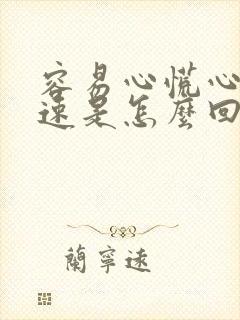 容易心慌心
速是怎麼回
蘭寧遠